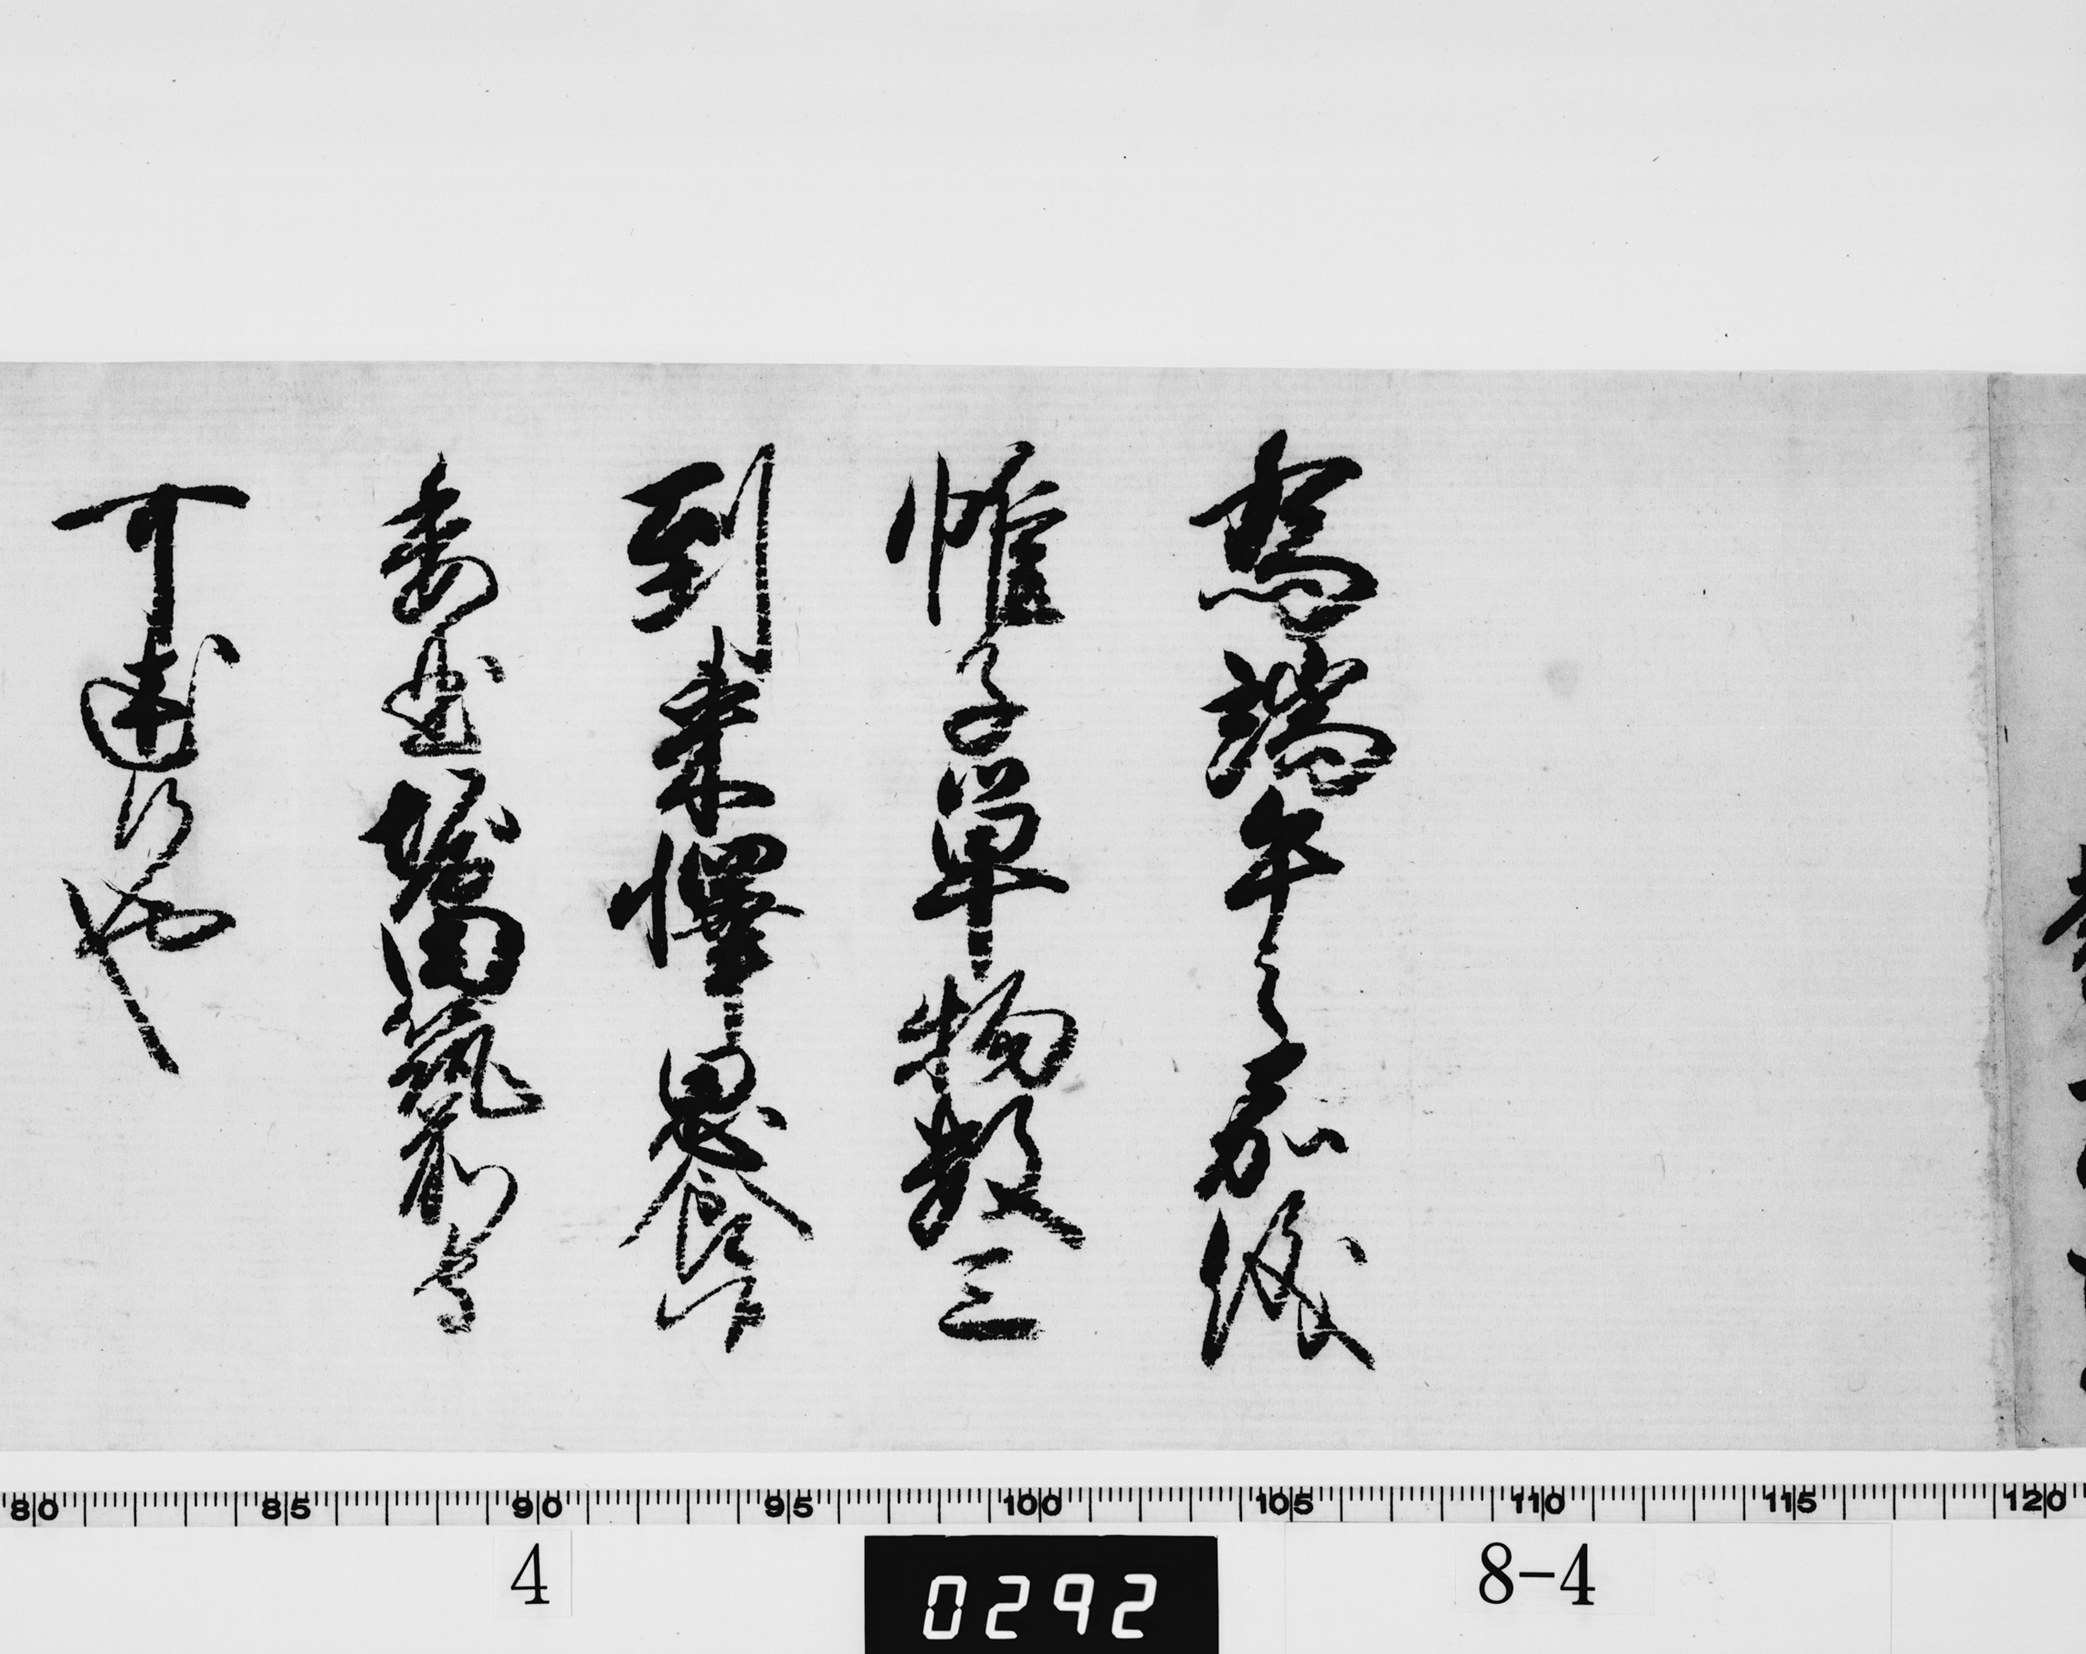 為端午之嘉儀
帷子單物数三
到来懌思食候
委曲堀田筑前守
可述候也
80 85 90 95 100 105 110 115 120
4 0292 8-4